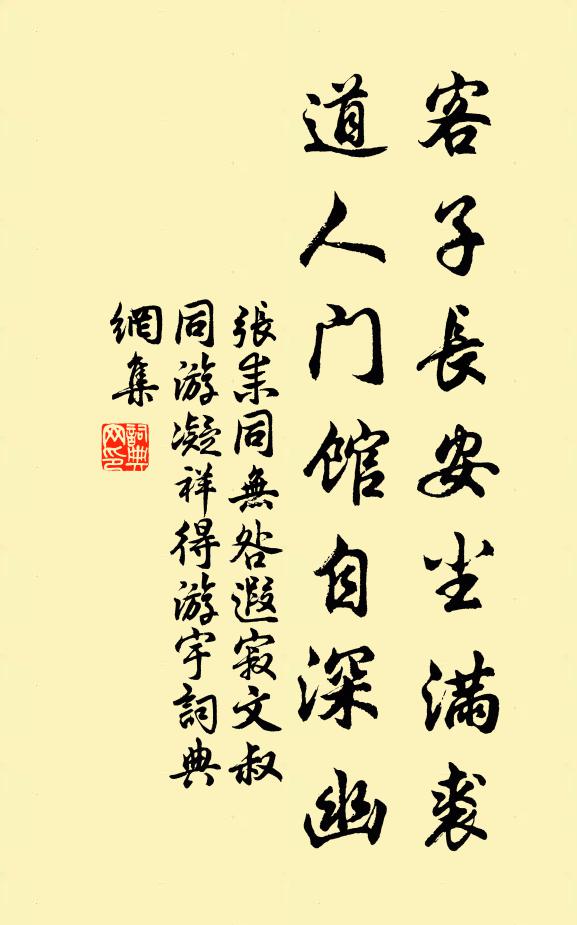 客子長安尘滿裘
道人門館自深幽
張耒同無咎遐寂文叔
同游凝祥得游宇詞典
網集
詞典网印